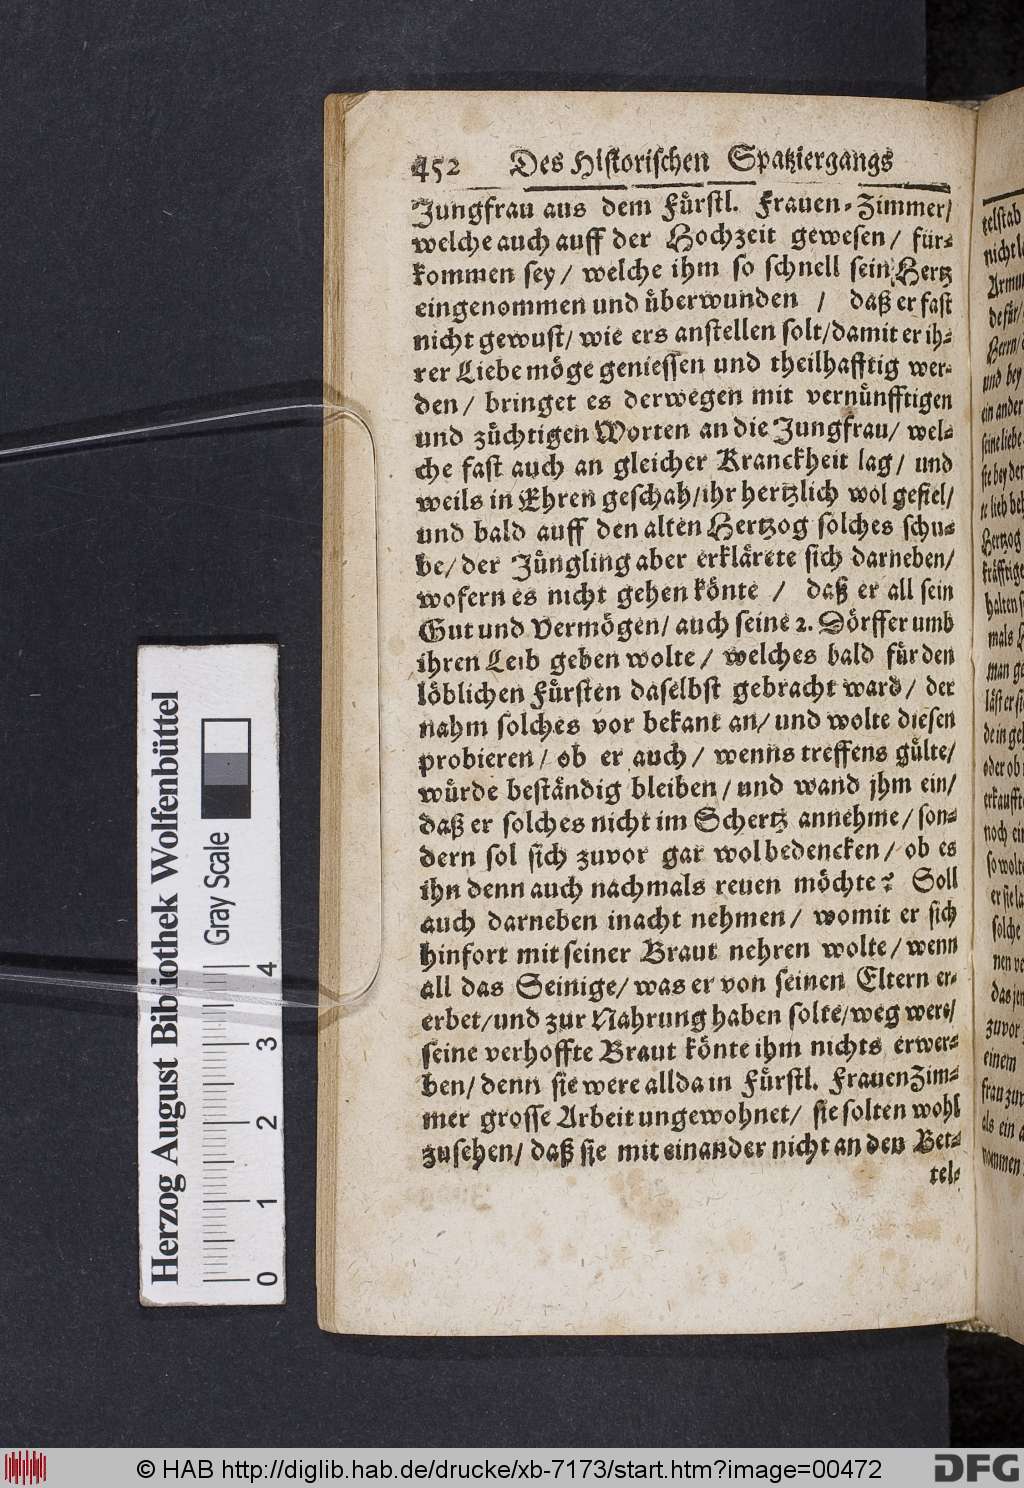 452 Des Historischen Spatziergangs
Jungfrau aus dem Fürstl. Frauen-Zimmer/
welche auch auff der Hochzeit gewesen/ für-
kommen sey/ welche ihm so schnell sein Hertz
eingenommen und überwunden / daß er fast
nicht gewust/ wie ers anstellen solt/damit er ih-
rer Liebe möge geniessen und theilhafftig wer-
den/ bringet es derwegen mit vernünfftigen
und züchtigen Worten an die Jungfrau/ wel-
che fast auch an gleicher Kranckheit lag/ und
weils in Ehren geschah/ihr hertzlich wol gefiel/
und bald auff den alten Hertzog solches schu-
be/ der Jüngling aber erklärete sich darneben/
wofern es nicht gehen könte / daß er all sein
Gut und Vermögen/ auch seine 2. Dörffer umb
ihren Leib geben wolte/ welches bald für den
löblichen Fürsten daselbst gebracht ward/ der
nahm solches vor bekant an/ und wolte diesen
probieren/ ob er auch/ wenns treffens gülte/
würde beständig bleiben/und wand jhm ein/
daß er solches nicht im Schertz annehme/ son-
dern sol sich zuvor gar wol bedencken/ ob es
ihn denn auch nachmals reuen möchte? Soll
auch darneben inacht nehmen/ womit er sich
hinfort mit seiner Braut nehren wolte/ wenn
all das Seinige/ was er von seinen Eltern er-
erbet/und zur Nahrung haben solte/weg were/
seine verhoffte Braut könte ihm nichts erwer-
ben/ denn sie were allda in Fürstl. FrauenZim-
mer grosse Arbeit ungewohnet/ sie solten wohl
zusehen/ daß sie mit einander nicht an den Bet-
tel-
telstab
nicht
de für/
Herrn/
und bey
ein ander
seine liebe
sie bey der
Hertzog
halten
mals
man
läst er
oder ob
erkauffte
noch
so wolte
er sie
solche
zuvor
einem
frau zur
als ein
nommen
Herzog August Bibliothek Wolfenbüttel
Gray Scale
0 1 2 3 4
© HAB http://diglib.hab.de/drucke/xb-7173/start.htm?image=00472
DFG